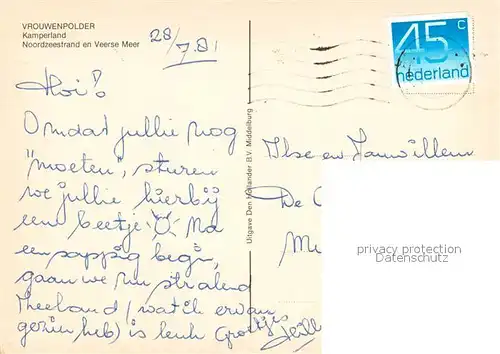 VROUWENPOLDER
Kamperland
Noordzeestrand en Veerse Meer
28/7.81
Hoi!
Omdat jullie nog
"moeten", sturen
we jullie hierbij
een beetje Na
een sappig begin,
gaan we nu stralend
Zeeland (wat ik ervan
gezien heb) is leuk Groetjes
Uitgave Den Hollander B.V. Middelburg
45 c
nederland
Ilse en Janwillem
De
privacy protection
Datenschutz